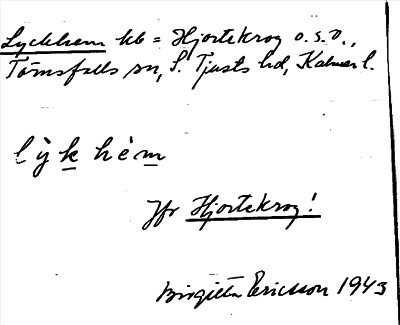 Lyckhem kb = Hjortekrog o.s.o.,
Törnsfalls sn, S. Tjusts hd, Kalmar l.
lỳk hèm
Jfr Hjortekrog!
Birgitta Ericsson 1943